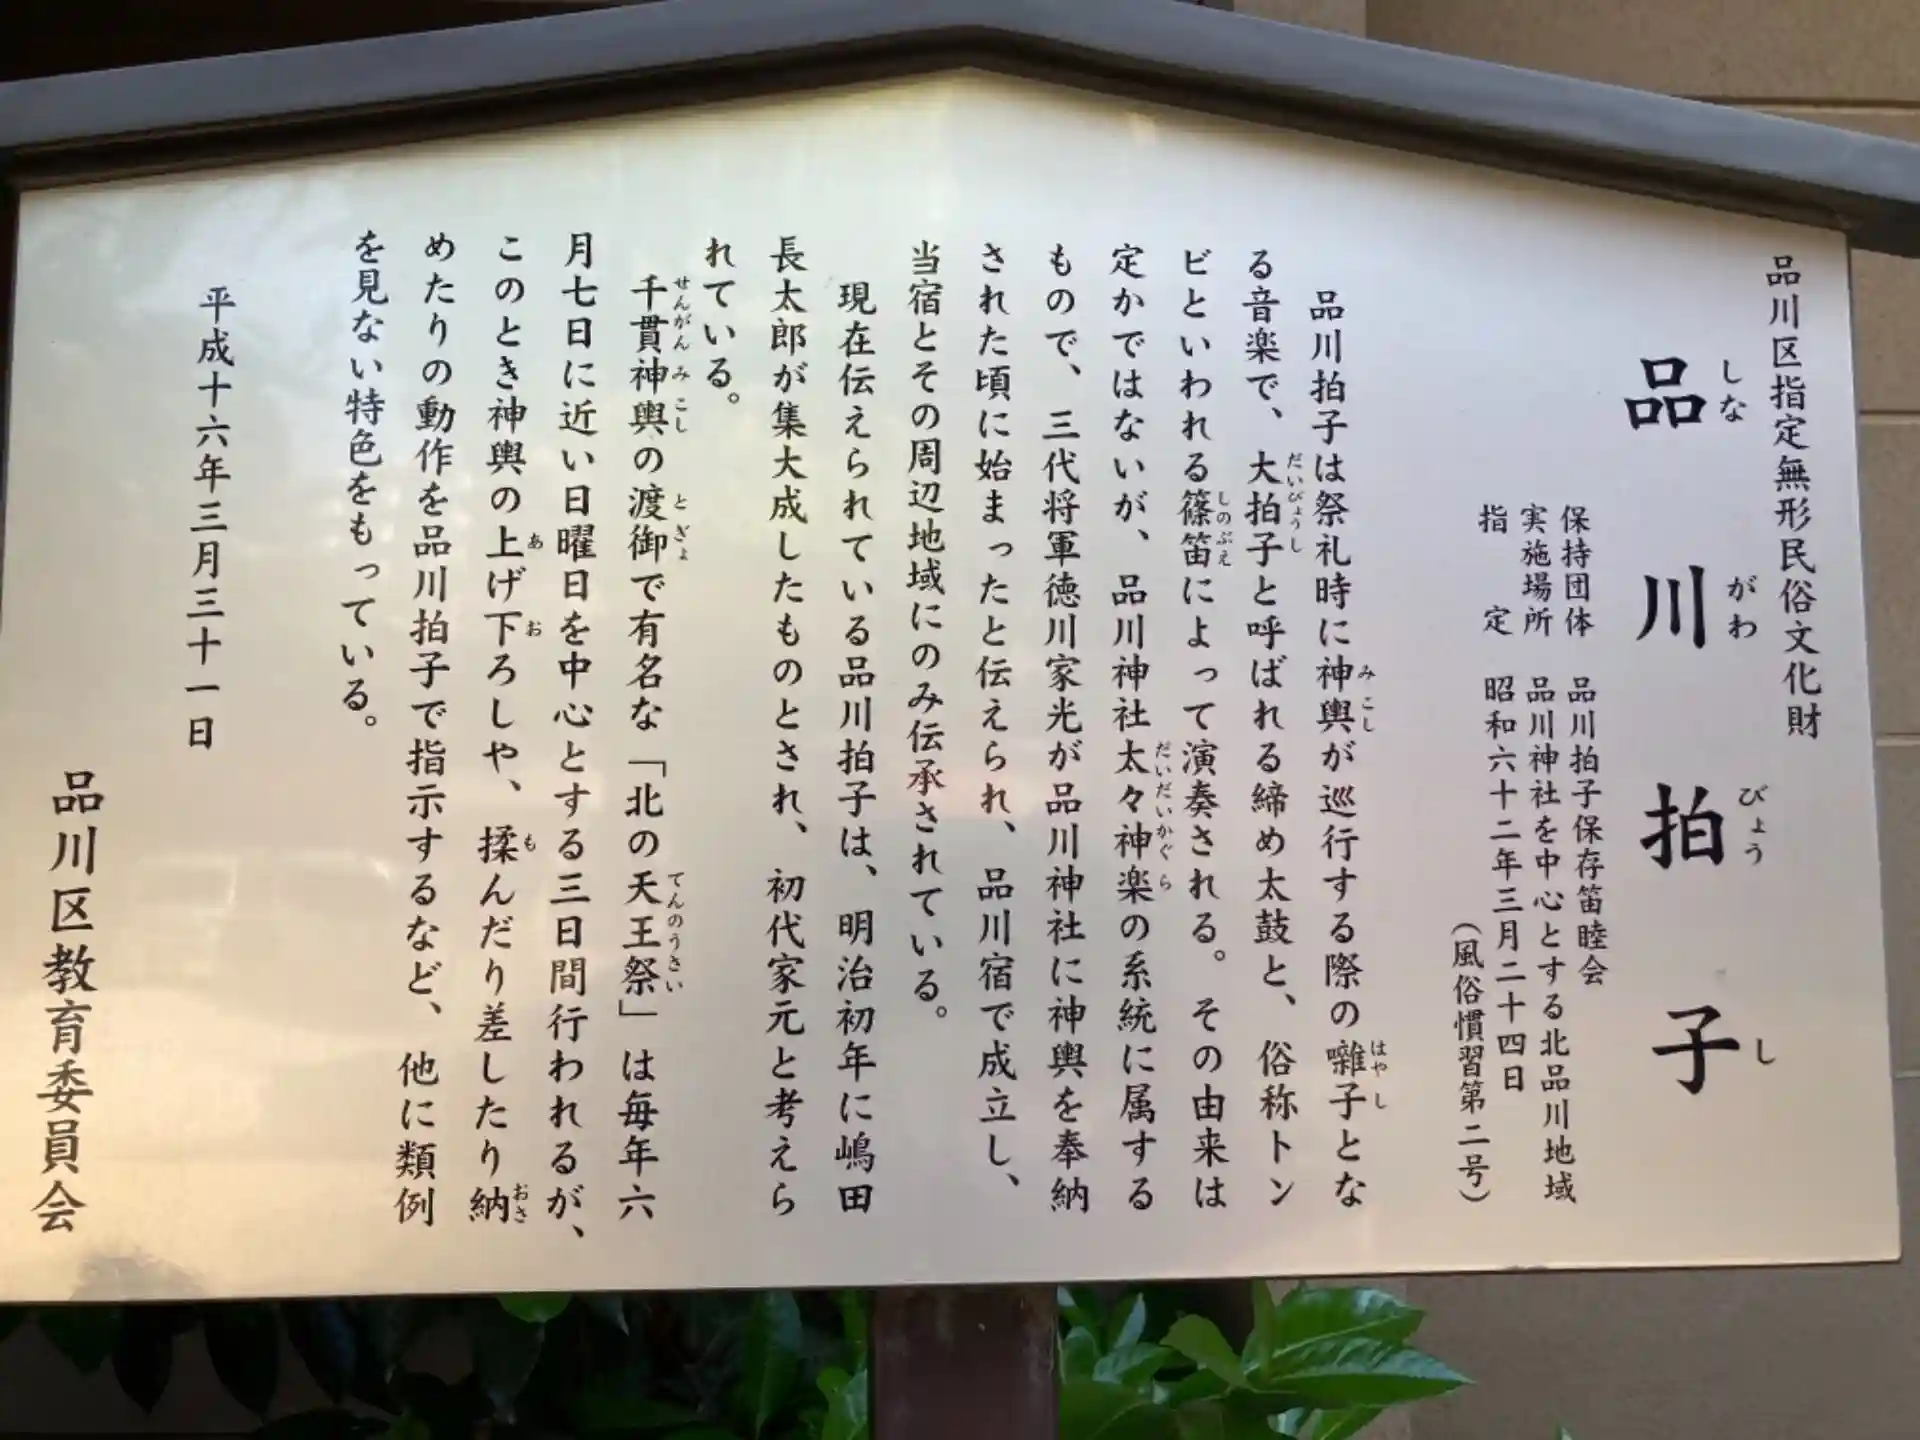 品川区指定無形民俗文化財
品川拍子
しながわびょうし
保持団体　品川拍子保存笛睦会
実施場所　品川神社を中心とする北品川地域
指　定　昭和六十二年三月二十四日
（風俗慣習第二号）
品川拍子は祭礼時に神輿が巡行する際の囃子とな
る音楽で、大拍子と呼ばれる締め太鼓と、俗称トン
ビといわれる篠笛によって演奏される。その由来は
定かではないが、品川神社太々神楽の系統に属する
もので、三代将軍徳川家光が品川神社に神輿を奉納
された頃に始まったと伝えられ、品川宿で成立し、
当宿とその周辺地域にのみ伝承されている。
現在伝えられている品川拍子は、明治初年に嶋田
長太郎が集大成したものとされ、初代家元と考えら
れている。
千貫神輿の渡御で有名な「北の天王祭」は毎年六
月七日に近い日曜日を中心とする三日間行われるが、
このとき神輿の上げ下ろしや、揉んだり差したり納
めたりの動作を品川拍子で指示するなど、他に類例
を見ない特色をもっている。
平成十六年三月三十一日
品川区教育委員会